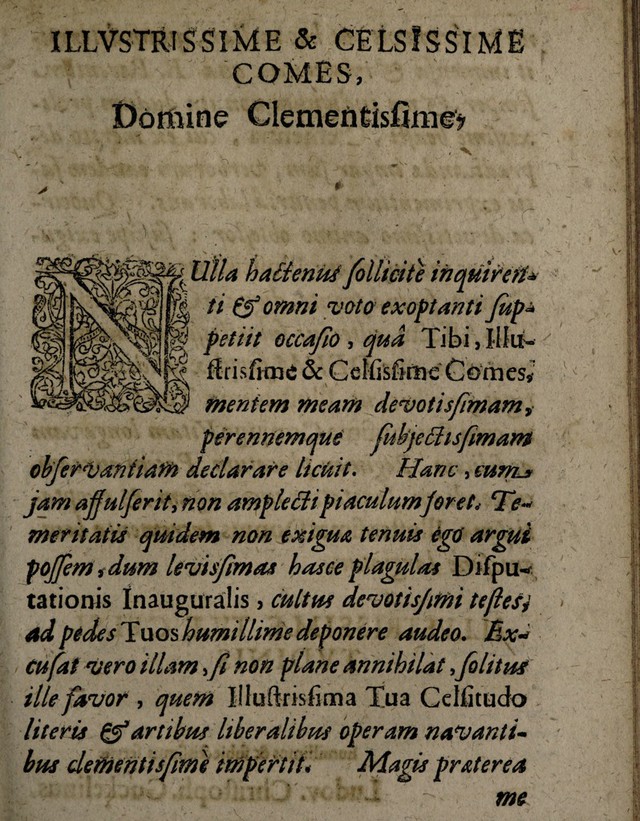 ILLVSTRISSIME & CELSISSIME
COMES,
Domine Clementisſime,
NUlla hactenus ſollicitè inquiren-
ti & omni voto exoptanti ſup-
petiit occaſio, quâ Tibi, Illu-
ſtrisſime & Celſisſime Comes,
mentem meam devotisſimam,
perennemque ſubjectisſimam
obſervantiam declarare licuit. Hanc, cum
jam affulſerit, non amplecti piaculum foret. Te-
meritatis quidem non exiguæ tenuis ego argui
poſſem, dum levisſimas hasce plagulas Diſpu-
tationis Inauguralis, cultus devotisſimi teſtes,
ad pedes Tuos humillime deponere audeo. Ex-
cuſat vero illam, ſi non plane annihilat, ſolitus
ille favor, quem Illuſtrisſima Tua Celſitudo
literis & artibus liberalibus operam navanti-
bus clementisſimè impertit. Magis præterea
me